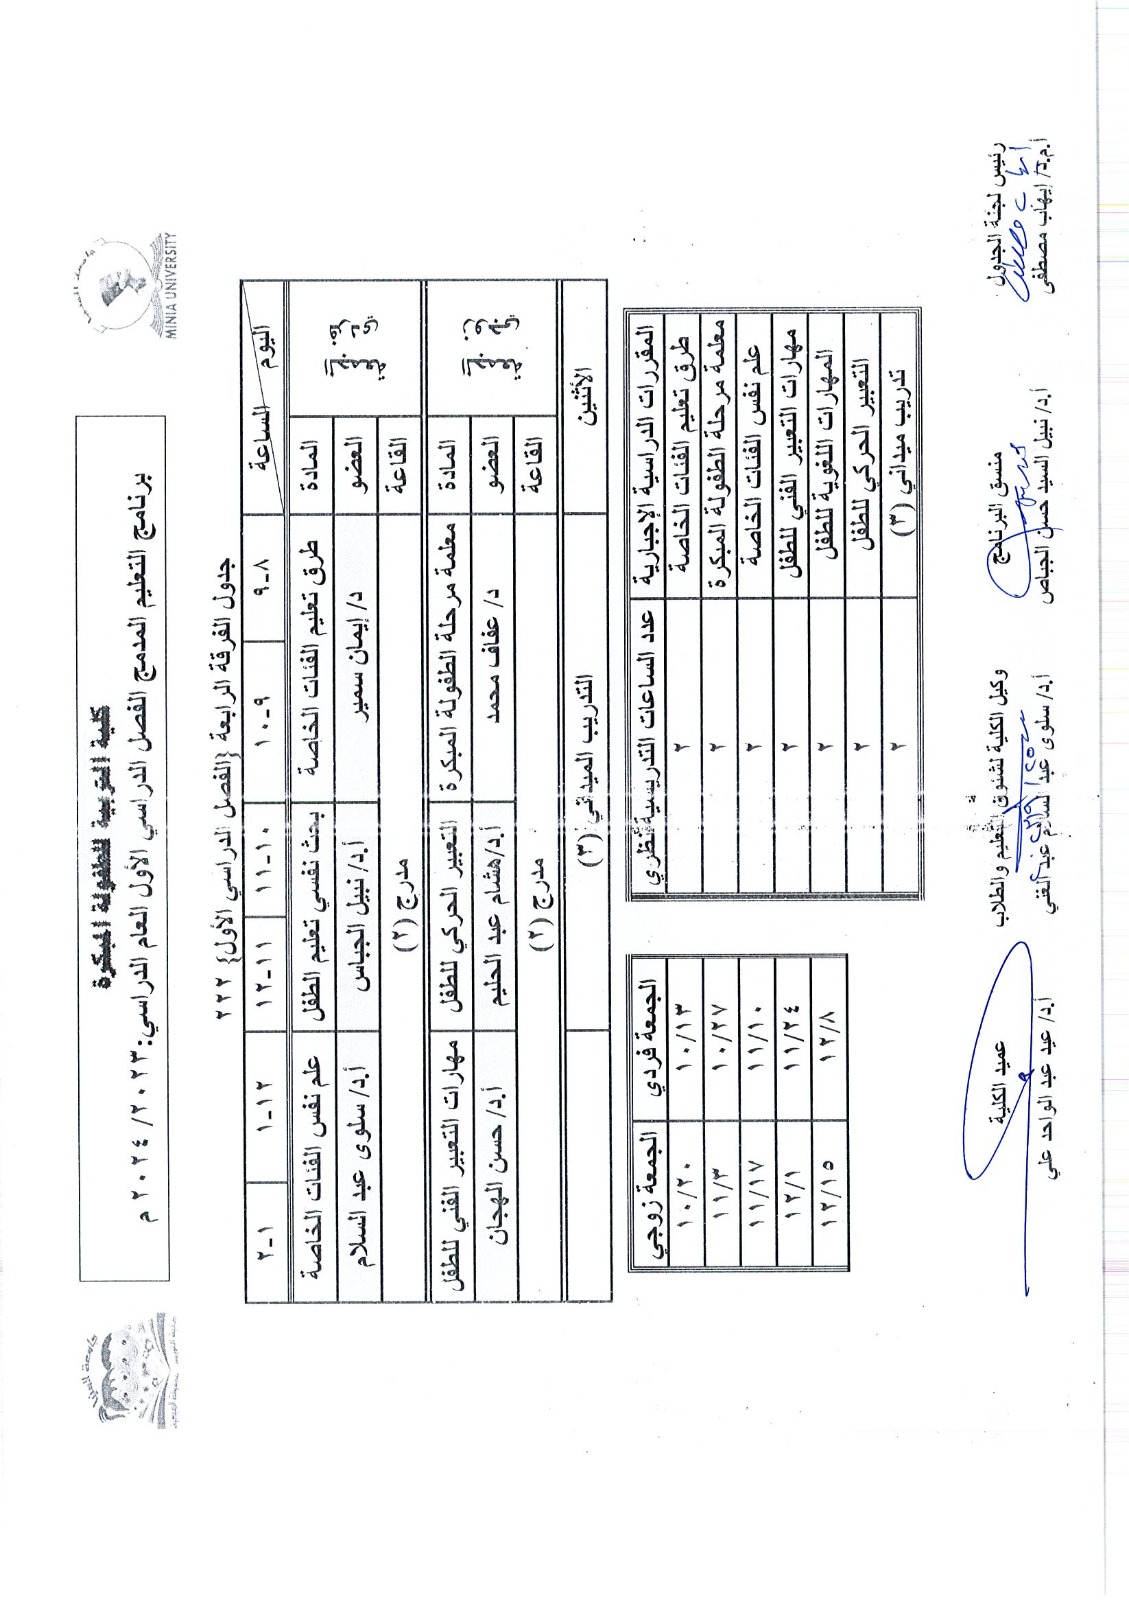 MINIA UNIVERSITY
كلية التربية للطفولة المبكرة
برنامج التعليم المدمج الفصل الدراسي الأول العام الدراسي: ٢٠٢٣/ ٢٠٢٤ م
جدول الفرقة الرابعة {الفصل الدراسي الأول} ٢٢٢
اليوم الساعة ٨-٩ ٩-١٠ ١٠-١١ ١١-١٢ ١٢-١ ١-٢
المادة طرق تعليم الفئات الخاصة بحث نفسي تعليم الطفل علم نفس الفئات الخاصة
العضو د/ إيمان سمير أ.د/ نبيل الجباس أ.د/ سلوى عبد السلام
القاعة مدرج (٢)
المادة معلمة مرحلة الطفولة المبكرة التعبير الحركي للطفل مهارات التعبير الفني للطفل
العضو د/ عفاف محمد أ.د/هشام عبد الحليم أ.د/ حسن الهجان
القاعة مدرج (٢)
الأثنين التدريب الميداني (٣)
المقررات الدراسية الإجبارية عدد الساعات التدريسية نظري
طرق تعليم الفئات الخاصة ٢
معلمة مرحلة الطفولة المبكرة ٢
علم نفس الفئات الخاصة ٢
مهارات التعبير الفني للطفل ٢
المهارات اللغوية للطفل ٢
التعبير الحركي للطفل ٢
تدريب ميداني (٣) ٢
الجمعة فردي الجمعة زوجي
١٠/١٣ ١٠/٢٠
١٠/٢٧ ١١/٣
١١/١٠ ١١/١٧
١١/٢٤ ١٢/١
١٢/٨ ١٢/١٥
رئيس لجنة الجدول منسق البرنامج وكيل الكلية لشئون التعليم والطلاب عميد الكلية
أ.م.د/ إيهاب مصطفى أ.د/ نبيل السيد حسن الجباص أ.د/ سلوى عبد السلام عبد الغني أ.د/ عيد عبد الواحد علي